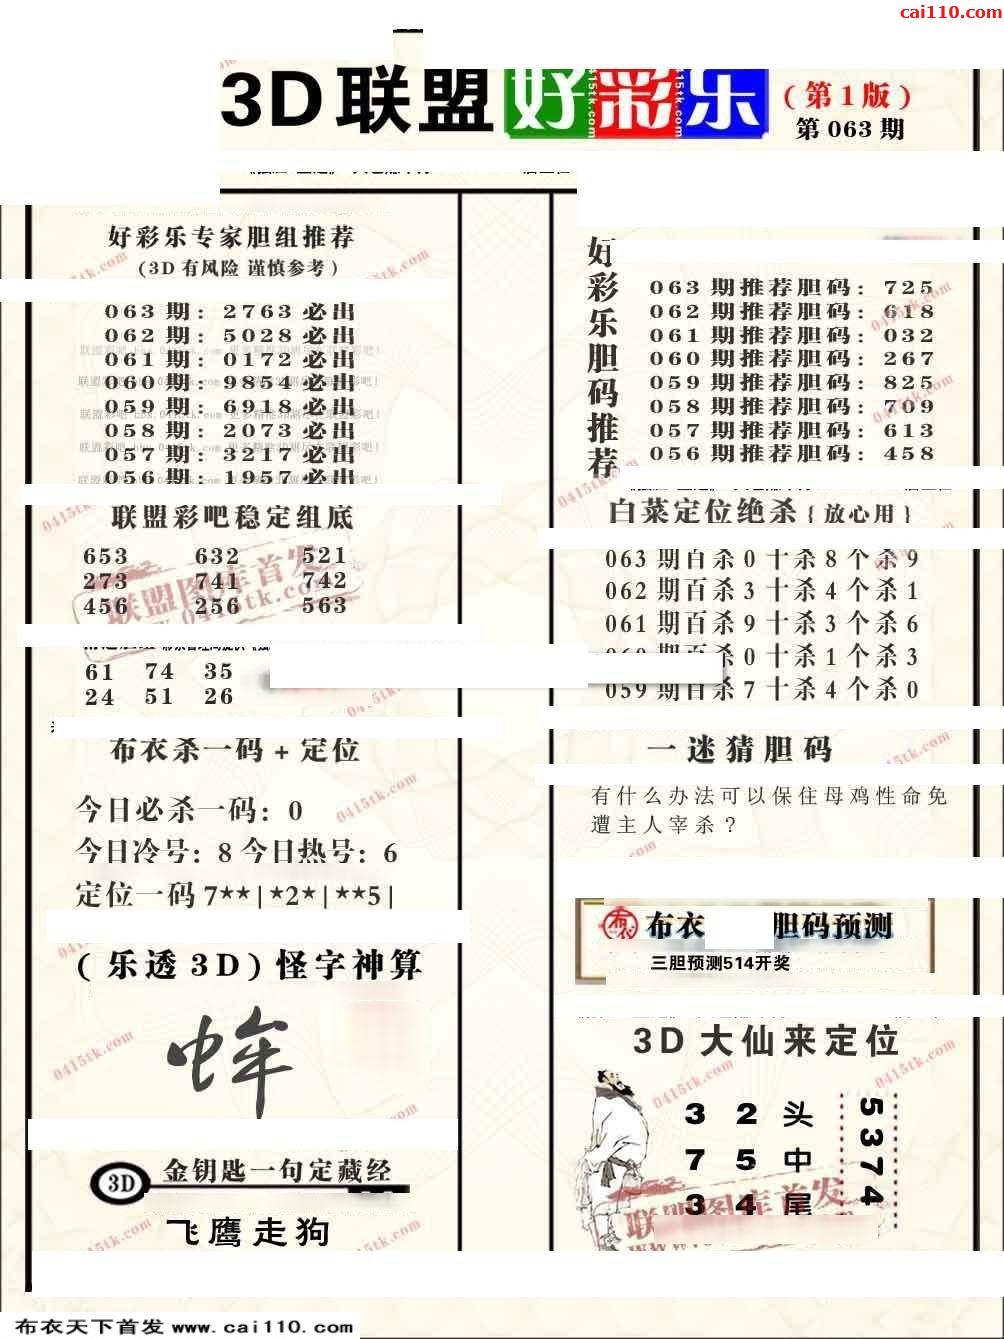 cai110.com
3D联盟好彩乐
(第1版)
第063期
好彩乐专家胆组推荐
(3D有风险 谨慎参考)
063期: 2763必出
062期: 5028必出
061期: 0172必出
060期: 9854必出
059期: 6918必出
058期: 2073必出
057期: 3217必出
056期: 1957必出
联盟彩吧稳定组底
653 632 521
273 741 742
456 256 563
61 74 35
24 51 26
布衣杀一码+定位
今日必杀一码: 0
今日冷号: 8今日热号: 6
定位一码7**|*2*|**5|
(乐透3D)怪字神算
3D
金钥匙一句定藏经
飞鹰走狗
好彩乐胆码推荐
063期推荐胆码: 725
062期推荐胆码: 618
061期推荐胆码: 032
060期推荐胆码: 267
059期推荐胆码: 825
058期推荐胆码: 709
057期推荐胆码: 613
056期推荐胆码: 458
白菜定位绝杀{放心用}
063期百杀0十杀8个杀9
062期百杀3十杀4个杀1
061期百杀9十杀3个杀6
060期百杀0十杀1个杀3
059期百杀7十杀4个杀0
一迷猜胆码
有什么办法可以保住母鸡性命免
遭主人宰杀?
布衣 胆码预测
三胆预测514开奖
3D大仙来定位
3 2头
7 5中
3 4尾
5374
联盟图库首发
0415tk.com
布衣天下首发 www.cai110.com